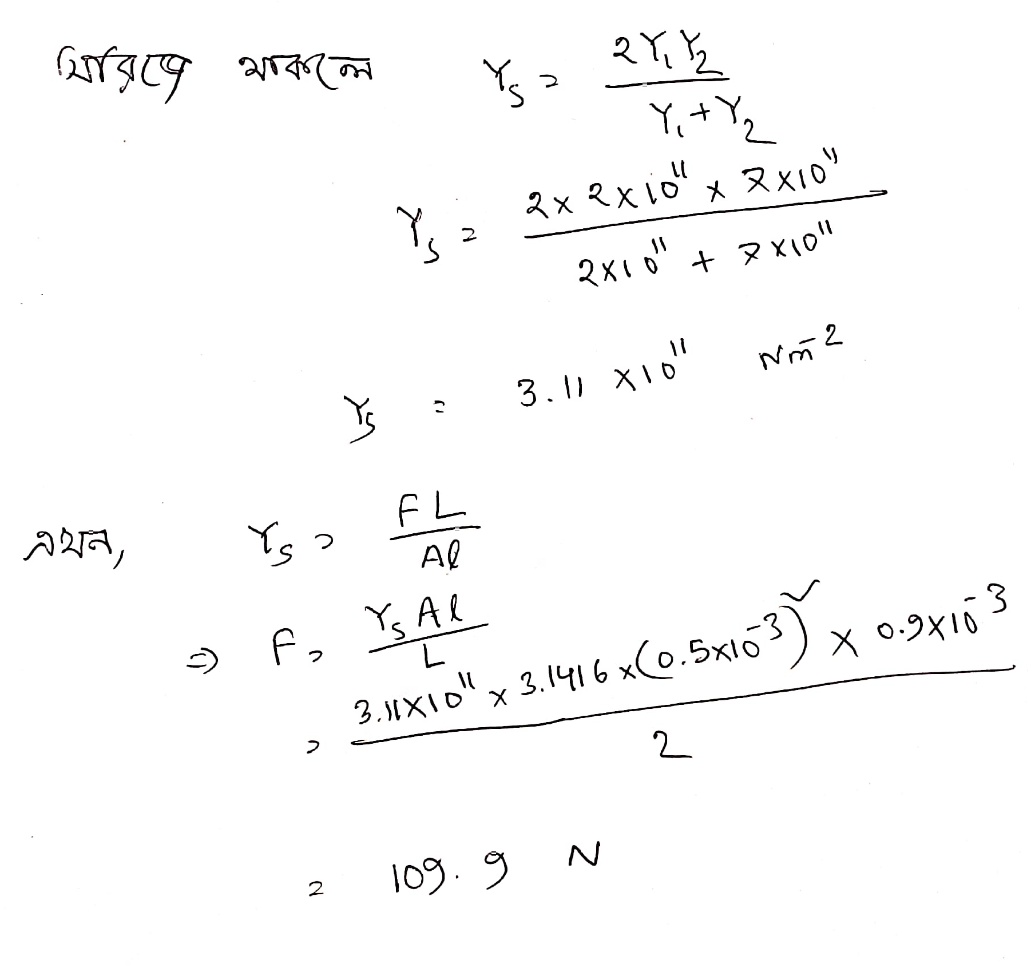 সিরিজে থাকলে Y_s = 2Y₁Y₂ / Y₁+Y₂
Y_s = 2×2×10¹¹ × 7×10¹¹ / 2×10¹¹ + 7×10¹¹
Y_s = 3.11 ×10¹¹ Nm⁻²
এখন, Y_s = FL / Al
⇒ F = Y_s A l / L
= 3.11×10¹¹ × 3.1416 × (0.5×10⁻³)² × 0.9×10⁻³ / 2
= 109.9 N